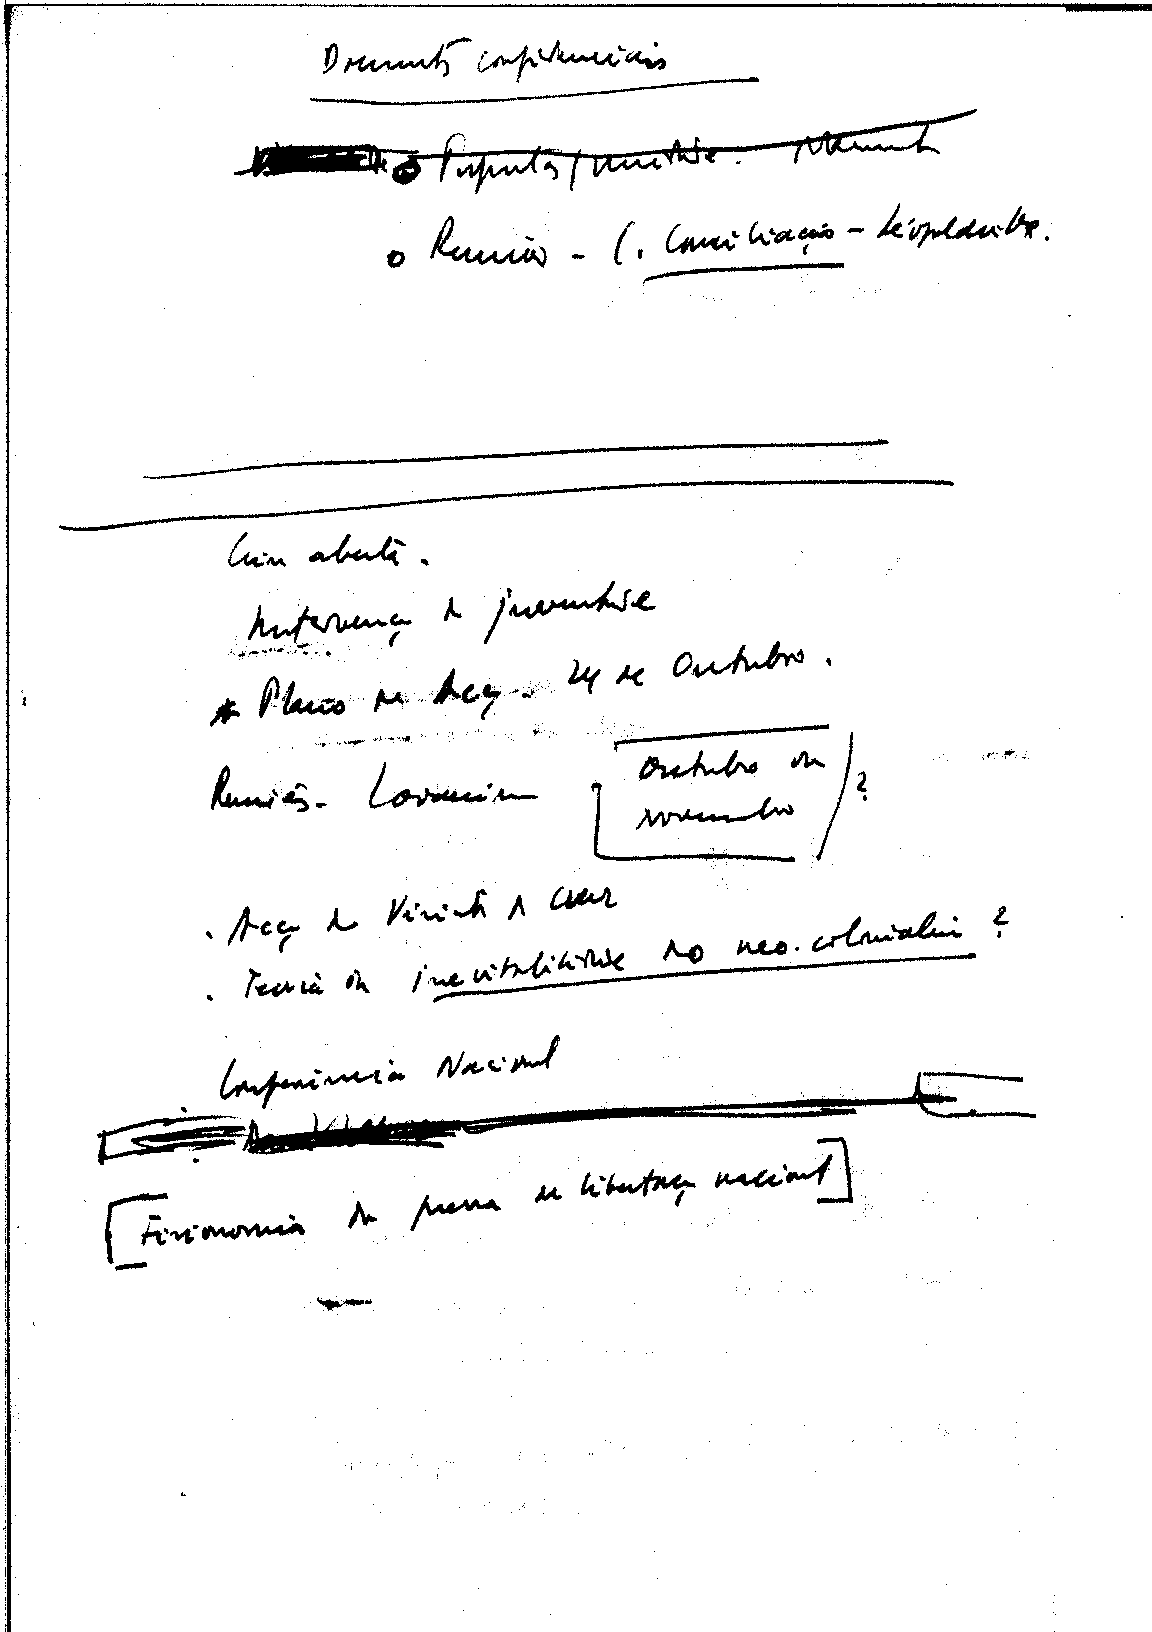 Documents confidenciais
o Reunião - C. Conciliação - Léopoldville.
aberta.
Intervenç da juventude
* Plano de Acç. 24 de Outubro.
Reuniões - Lovanium
Outubro ou
novembro ?
. Acç da Viriato da Cruz
. Teoria da inevitabilidade do neo-colonialis ?
Conferência Nacional
[Fisionomia da guerra de libertaç nacional]